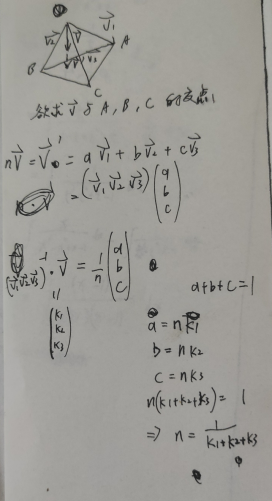 V⃗₂ V⃗ V⃗₁
V₃ A
B
C
欲求 V⃗ 与 A, B, C 的交点
nV⃗ = V⃗' = aV⃗₁ + bV⃗₂ + cV⃗₃
= (V⃗₁ V⃗₂ V⃗₃) (a b c)
(V⃗₁ V⃗₂ V⃗₃)⁻¹ · V⃗ = 1/n (a b c)
a+b+c=1
(k₁ k₂ k₃)
a = nk₁
b = nk₂
c = nk₃
n(k₁+k₂+k₃) = 1
⇒ n = 1/(k₁+k₂+k₃)